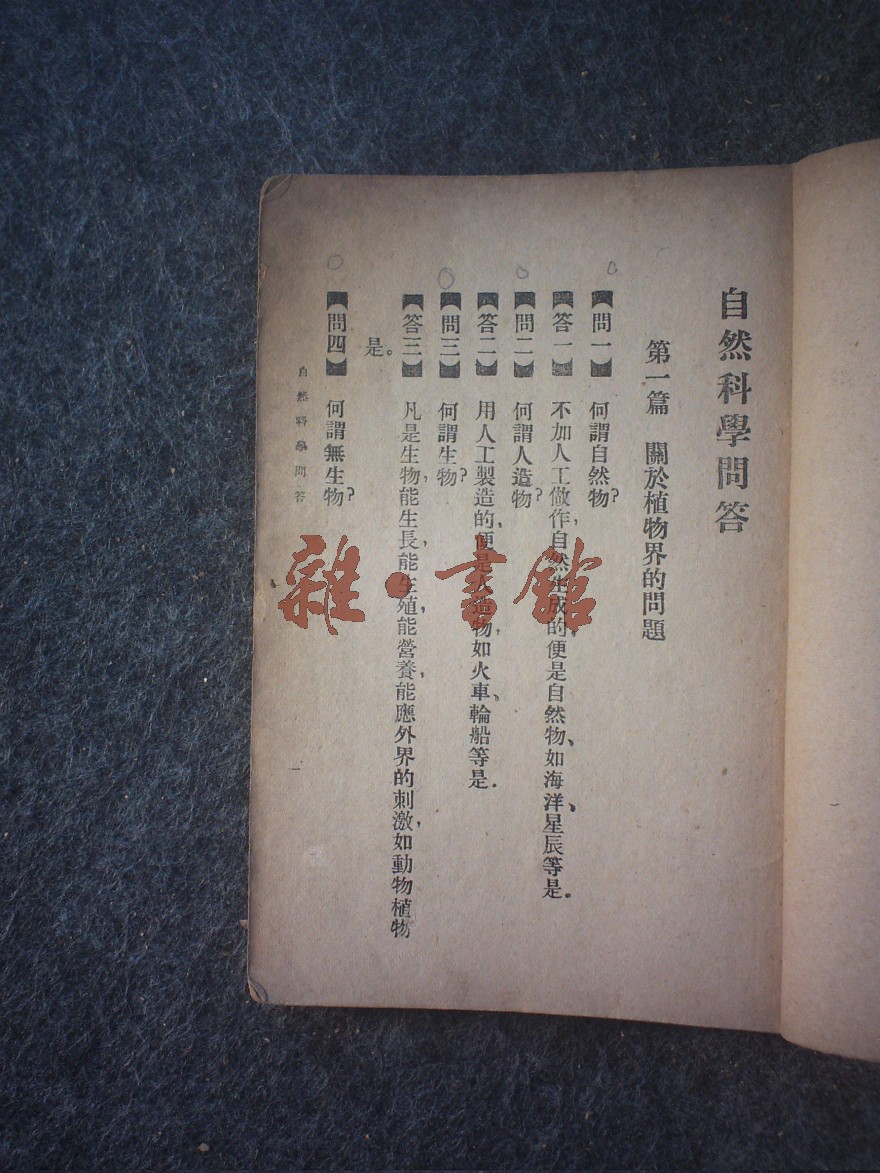 自然科學問答
第一篇 關於植物界的問題
【問一】 何謂自然物?
【答一】 不加人工做作,自然生成的,便是自然物、如海洋、星辰等是.
【問二】 何謂人造物?
【答二】 用人工製造的,便是人造物,如火車、輪船等是.
【問三】 何謂生物?
【答三】 凡是生物,能生長,能生殖,能營養,能應外界的刺激,如動物植物
是。
【問四】 何謂無生物?
自然科學問答
一
雜·書館